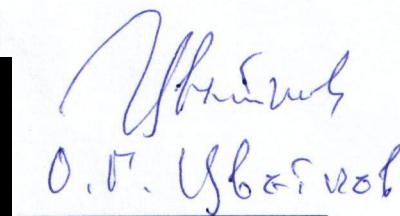 Цветков
О. Г. Цветков